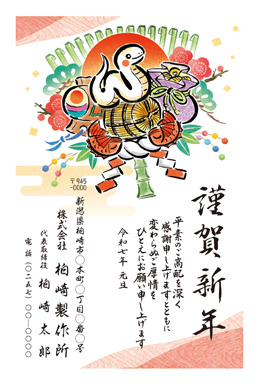 謹賀新年
平素のご高配を深く
感謝申し上げますとともに
変わらぬご厚情を
ひとえにお願い申し上げます
令和七年 元旦
〒945
-0000
新潟県柏崎市〇木町〇丁目〇番〇号
株式会社 柏崎製作所
代表取締役 柏崎太郎
電話(〇二五七)〇〇-〇〇〇〇